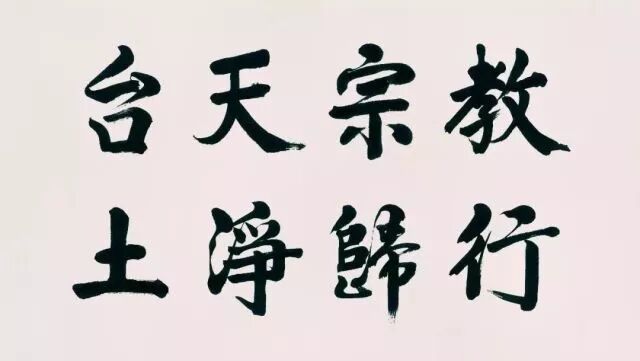 教宗天台
行歸淨土